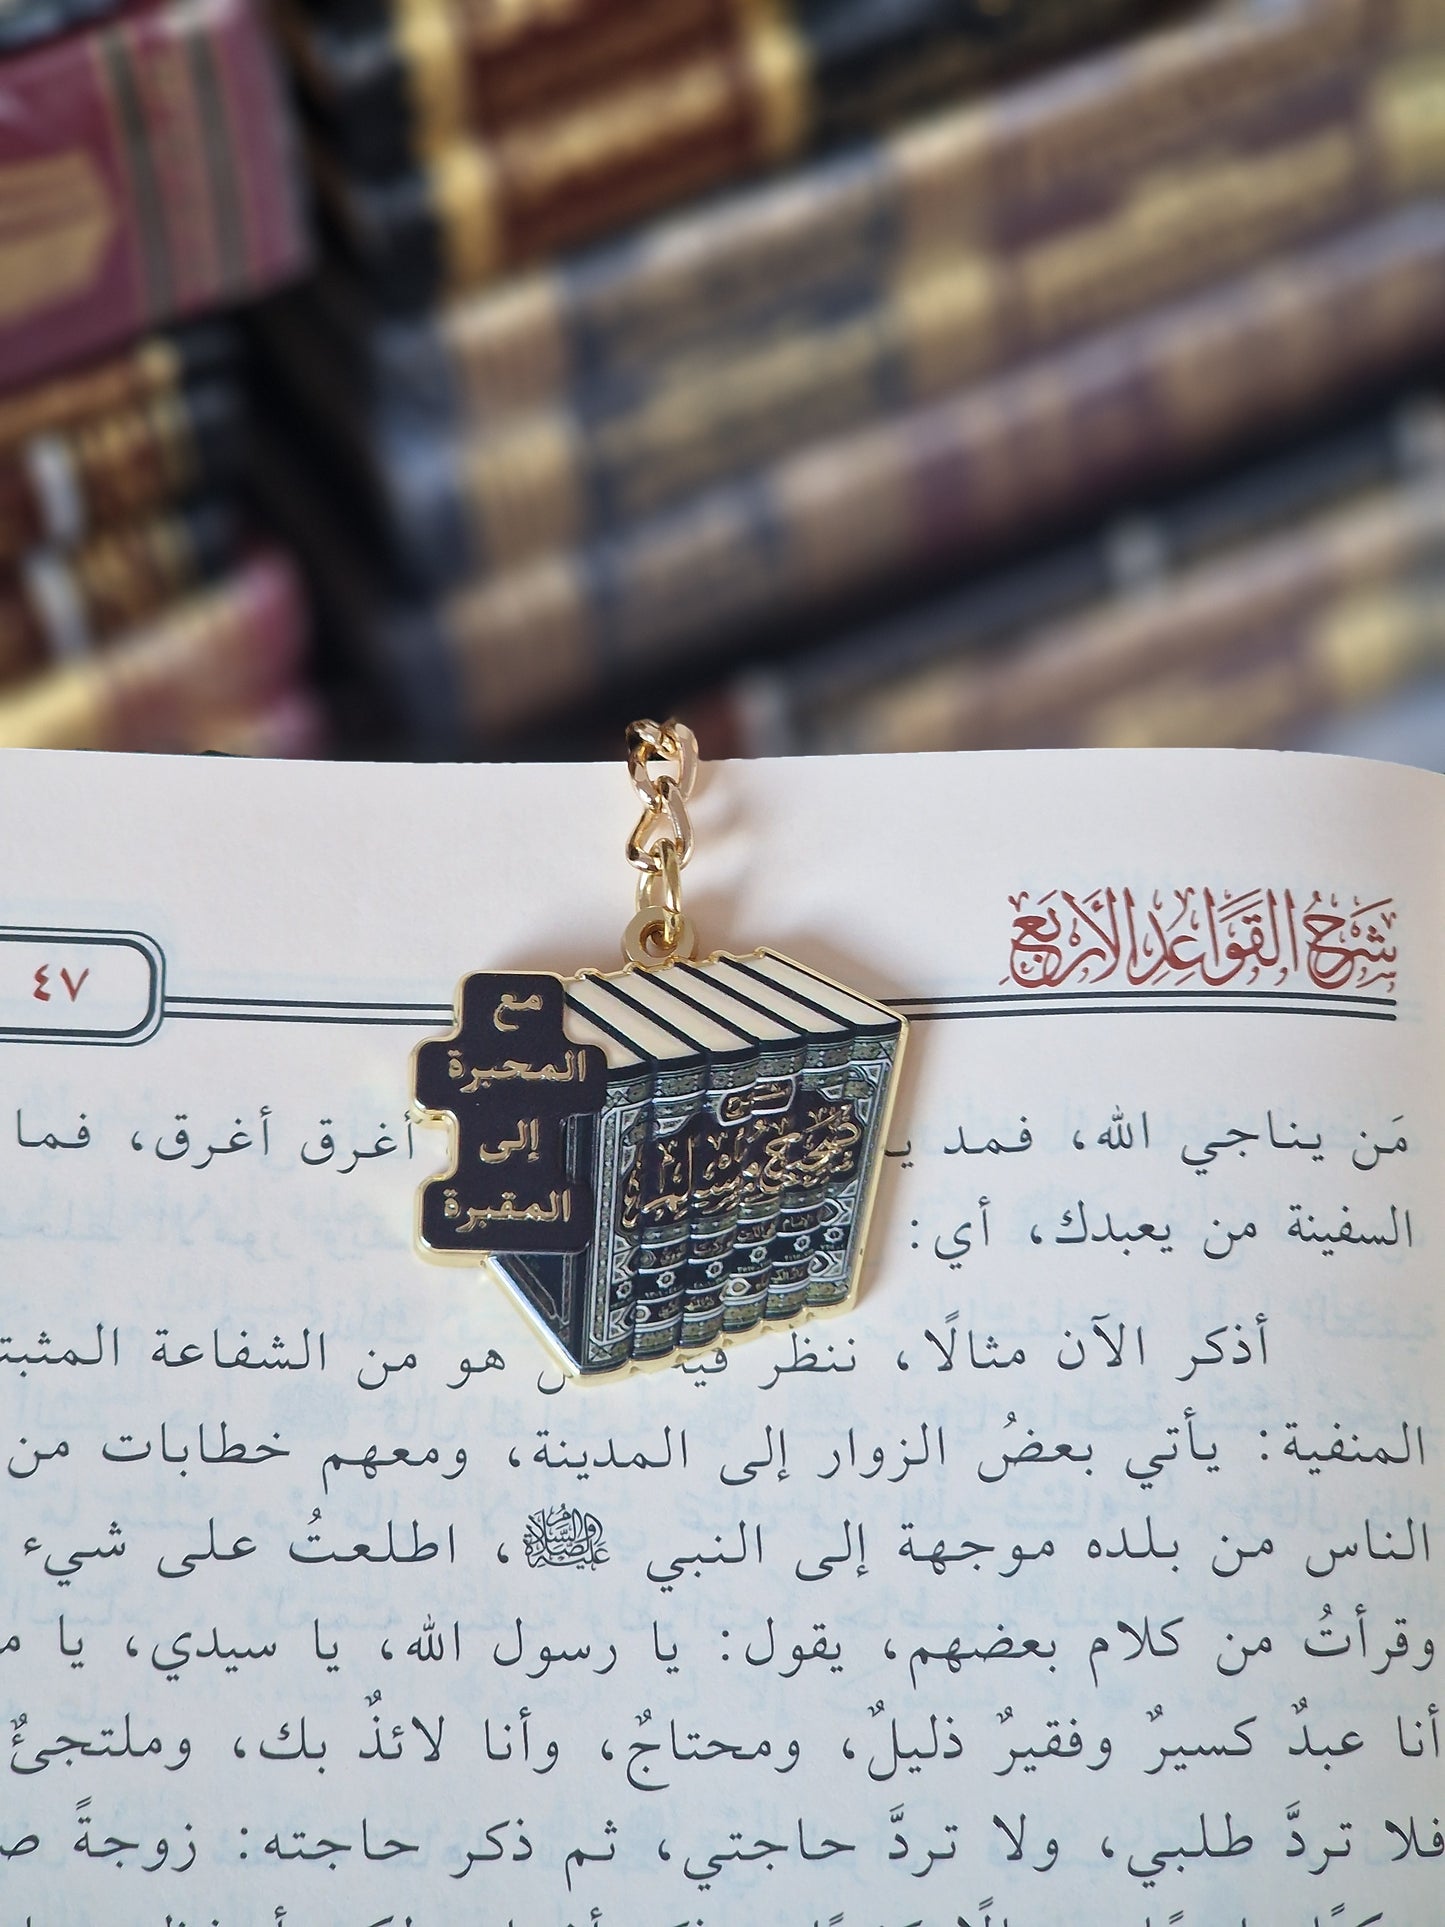 شَرْحُ القَوَاعِدِ الأَرْبَعِ
٤٧
مع
المحبرة
إلى
المقبرة
شرح
صحيح مسلم
مَن يناجي الله، فمد أغرق أغرق، فما
السفينة من يعبدك، أي:
أذكر الآن مثالًا، ننظر فيه هو من الشفاعة
المنفية: يأتي بعضُ الزوار إلى المدينة، ومعهم خطابات من
الناس من بلده موجهة إلى النبي عليه الصلاة والسلام، اطلعتُ على شيء
وقرأتُ من كلام بعضهم، يقول: يا رسول الله، يا سيدي، يا
أنا عبدٌ كسيرٌ وفقيرٌ ذليلٌ، ومحتاجٌ، وأنا لائذٌ بك، وملتجئٌ
فلا تردَّ طلبي، ولا تردَّ حاجتي، ثم ذكر حاجته: زوجةً